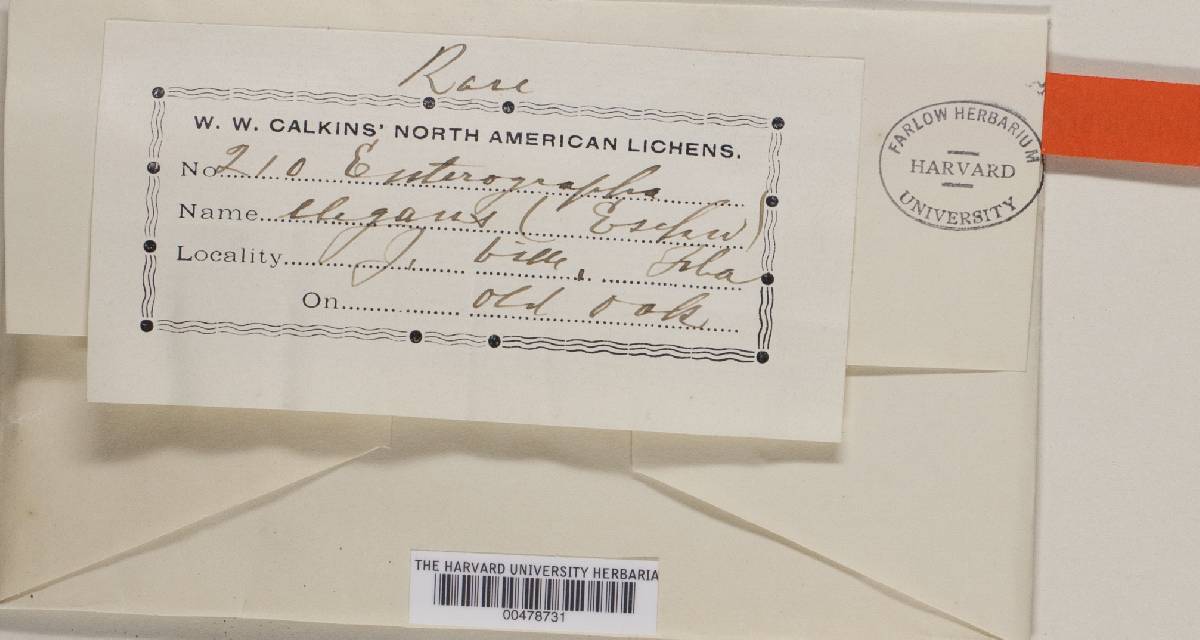 Rare
W. W. CALKINS' NORTH AMERICAN LICHENS.
No 210 Enterographa
Name elegans (Eschw)
Locality J. ville, Fla
On old oak
FARLOW HERBARIUM
HARVARD
UNIVERSITY
THE HARVARD UNIVERSITY HERBARIA
00478731